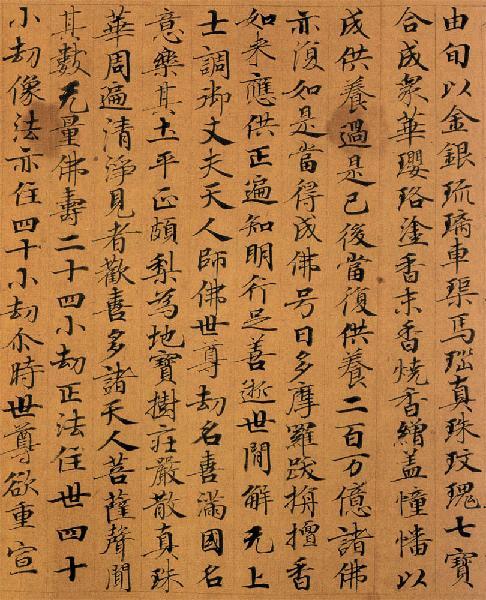 由旬以金銀琉璃車渠馬瑙真珠玫瑰七寶
合成衆華瓔珞塗香末香燒香繒盖幢幡以
戍供養過是已後當復供養二百万億諸佛
亦復如是當得成佛号曰多摩羅跋栴檀香
如来應供正遍知明行足善逝世間解无上
士調御丈夫天人師佛世尊劫名喜滿國名
意樂其土平正頗梨為地寶樹莊嚴散真珠
華周遍清淨見者歡喜多諸天人菩薩聲聞
其數无量佛壽二十四小劫正法住世四十
小劫像法亦住四十小劫尒時世尊欲重宣